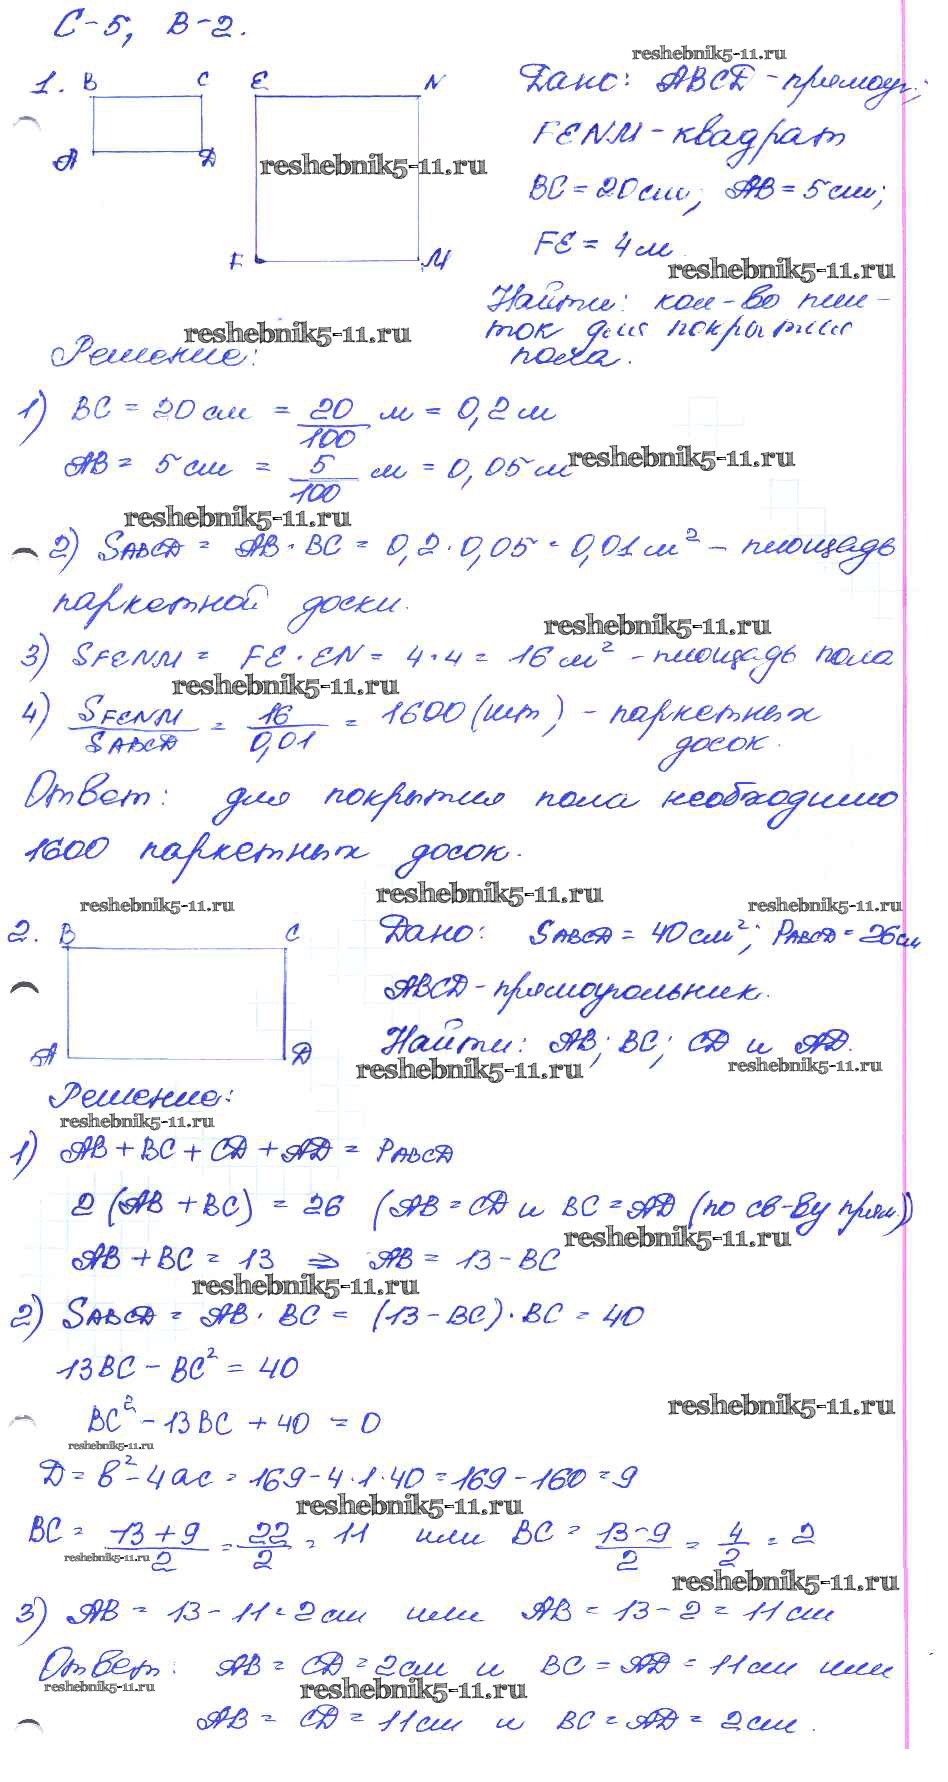 С-5, В-2.
reshebnik5-11.ru
1. B C E N Дано: ABCD - прямоуг.;
A D FENM - квадрат
reshebnik5-11.ru
BC = 20 см; AB = 5 см;
F M FE = 4 м
reshebnik5-11.ru
Найти: кол-во плит-
reshebnik5-11.ru ток для покрытия
Решение: пола.
1) BC = 20 см = 20/100 м = 0,2 м
AB = 5 см = 5/100 м = 0,05 м
reshebnik5-11.ru
reshebnik5-11.ru
2) SABCD = AB · BC = 0,2 · 0,05 = 0,01 м² - площадь
паркетной доски.
reshebnik5-11.ru
3) SFENM = FE · EN = 4 · 4 = 16 м² - площадь пола
reshebnik5-11.ru
4) SFENM/SABCD = 16/0,01 = 1600 (шт) - паркетных
досок.
Ответ: для покрытия пола необходимо
1600 паркетных досок.
reshebnik5-11.ru reshebnik5-11.ru reshebnik5-11.ru
2. B C Дано: SABCD = 40 см²; PABCD = 26 см
ABCD - прямоугольник.
A D Найти: AB; BC; CD и AD.
reshebnik5-11.ru reshebnik5-11.ru
Решение:
reshebnik5-11.ru
1) AB + BC + CD + AD = PABCD
2 (AB + BC) = 26 (AB = CD и BC = AD (по св-ву прям.))
reshebnik5-11.ru
AB + BC = 13 ⇒ AB = 13 - BC
reshebnik5-11.ru
2) SABCD = AB · BC = (13 - BC) · BC = 40
13BC - BC² = 40
reshebnik5-11.ru
BC² - 13BC + 40 = 0
reshebnik5-11.ru
D = b² - 4ac = 169 - 4 · 1 · 40 = 169 - 160 = 9
reshebnik5-11.ru
BC = 13 + 9/2 = 22/2 = 11 или BC = 13 - 9/2 = 4/2 = 2
reshebnik5-11.ru
reshebnik5-11.ru
3) AB = 13 - 11 = 2 см или AB = 13 - 2 = 11 см
Ответ: AB = CD = 2 см и BC = AD = 11 см или
reshebnik5-11.ru reshebnik5-11.ru
AB = CD = 11 см и BC = AD = 2 см.